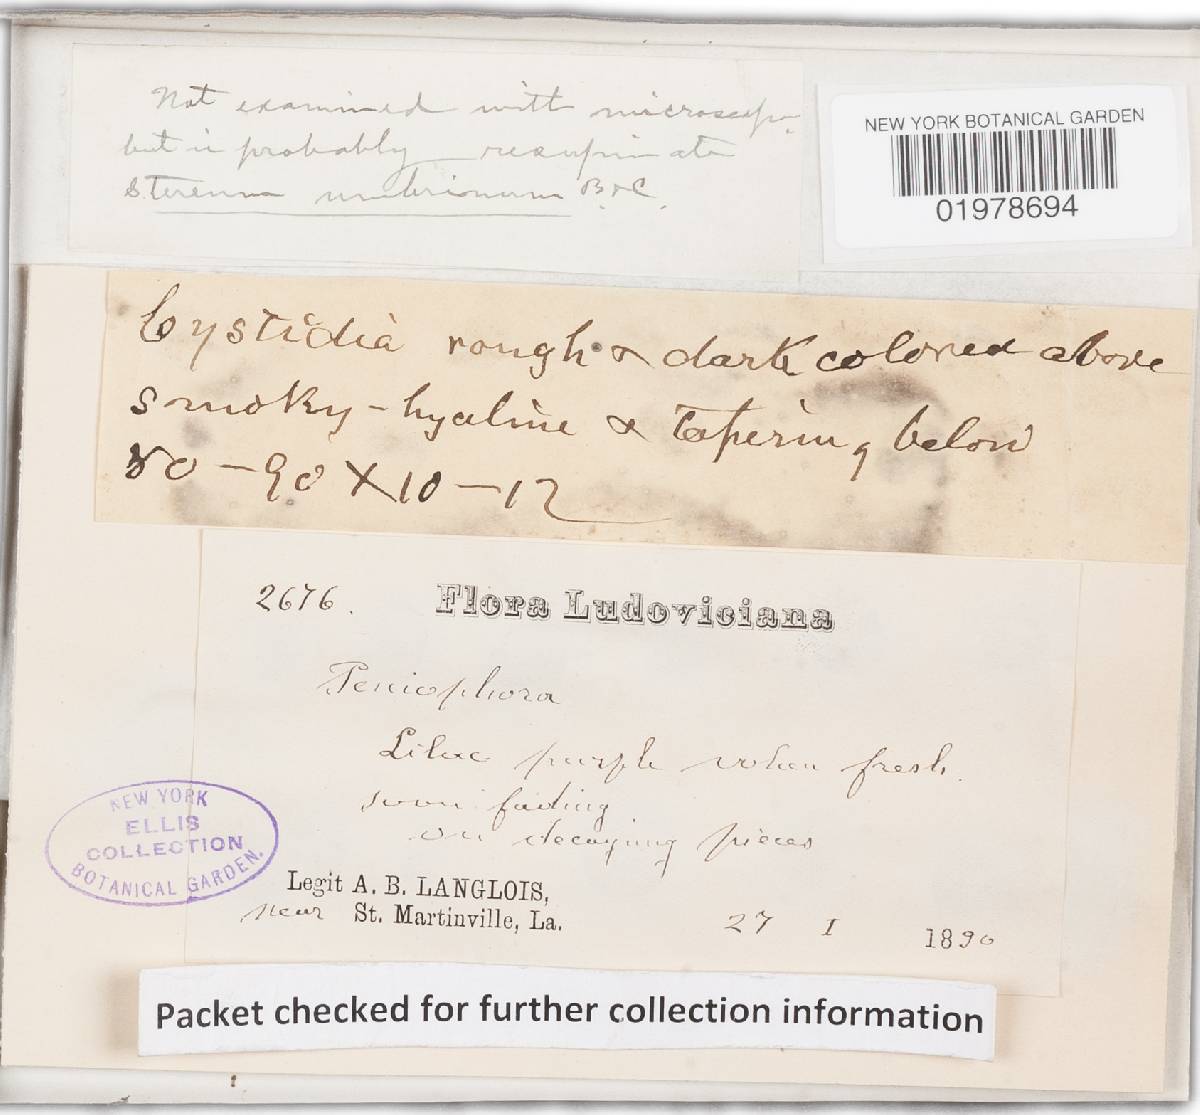 Not examined with microscope.
but is probably resupinate
Stereum umbrinum B. & C.
NEW YORK BOTANICAL GARDEN
01978694
Cystidia rough & dark colored above
smoky-hyaline & tapering below
80-90 X 10-12
2676.
Flora Ludoviciana
Peniophora
Lilac purple when fresh.
soon fading
on decaying pieces
NEW YORK
ELLIS
COLLECTION
BOTANICAL GARDEN.
Legit A. B. LANGLOIS,
near St. Martinville, La.
27 I 1890
Packet checked for further collection information